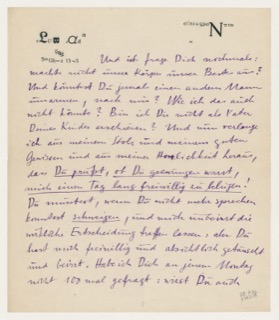 Und ich frage Dich nochmals:
machte nicht unsere Körper unser Bestes aus?
Und könntest Du jemal einen andern Mann
umarmen, nach mir? Wie ich das auch
nicht könnte? Bin ich Dir nicht als Vater
Deines Kindes erschienen? Und nun verlange
ich aus meinem Stolz und meinem guten
Gewissen und aus meiner Herrlichkeit heraus,
dass Du prüfst, ob Du gezwungen warst,
mich einen Tag lang freiwillig zu belügen!
Du musstest, wenn Du nicht mehr sprechen
konntest schweigen, und mich unbeirrt die
Entscheidung treffen lassen: aber Du
hast mich freiwillig und absichtlich getäuscht
und beirrt. Habe ich Dich an jenem Montag
nicht 100 mal gefragt: wirst Du auch